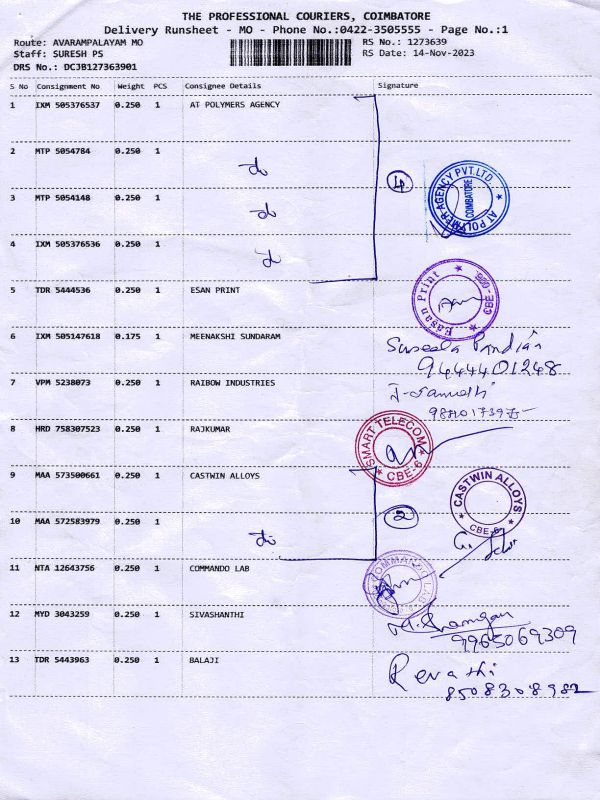 THE PROFESSIONAL COURIERS, COIMBATORE
Delivery Runsheet - MO - Phone No.:0422-3505555 - Page No.:1
Route: AVARAMPALAYAM MO
RS No.: 1273639
Staff: SURESH PS
RS Date: 14-Nov-2023
DRS No.: DCJB127363901
S No Consignment No Weight PCS Consignee Details Signature
1 IXM 505376537 0.250 1 AT POLYMERS AGENCY
2 MTP 5054784 0.250 1 do
3 MTP 5054148 0.250 1 do
4
AT POLYMER AGENCY PVT.LTD
COIMBATORE
4 IXM 505376536 0.250 1 do
5 TDR 5444536 0.250 1 ESAN PRINT
Easan Print CBE-
6 IXM 505147618 0.175 1 MEENAKSHI SUNDARAM
Suseela Pandian
9444401248
7 VPM 5238073 0.250 1 RAIBOW INDUSTRIES
8 HRD 758307523 0.250 1 RAJKUMAR
SMART TELECOM
CBE-6
9 MAA 573500661 0.250 1 CASTWIN ALLOYS
CASTWIN ALLOYS
CBE-6
10 MAA 572583979 0.250 1 do
2
11 NTA 12643756 0.250 1 COMMANDO LAB
COMMANDO LAB
12 MYD 3043259 0.250 1 SIVASHANTHI
9965069309
13 TDR 5443963 0.250 1 BALAJI
Revathi
8508308982